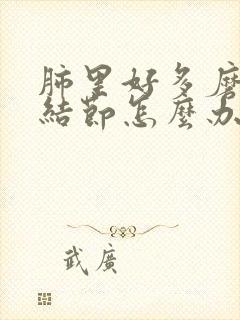 肺里好多磨
結節怎麼办
武廣